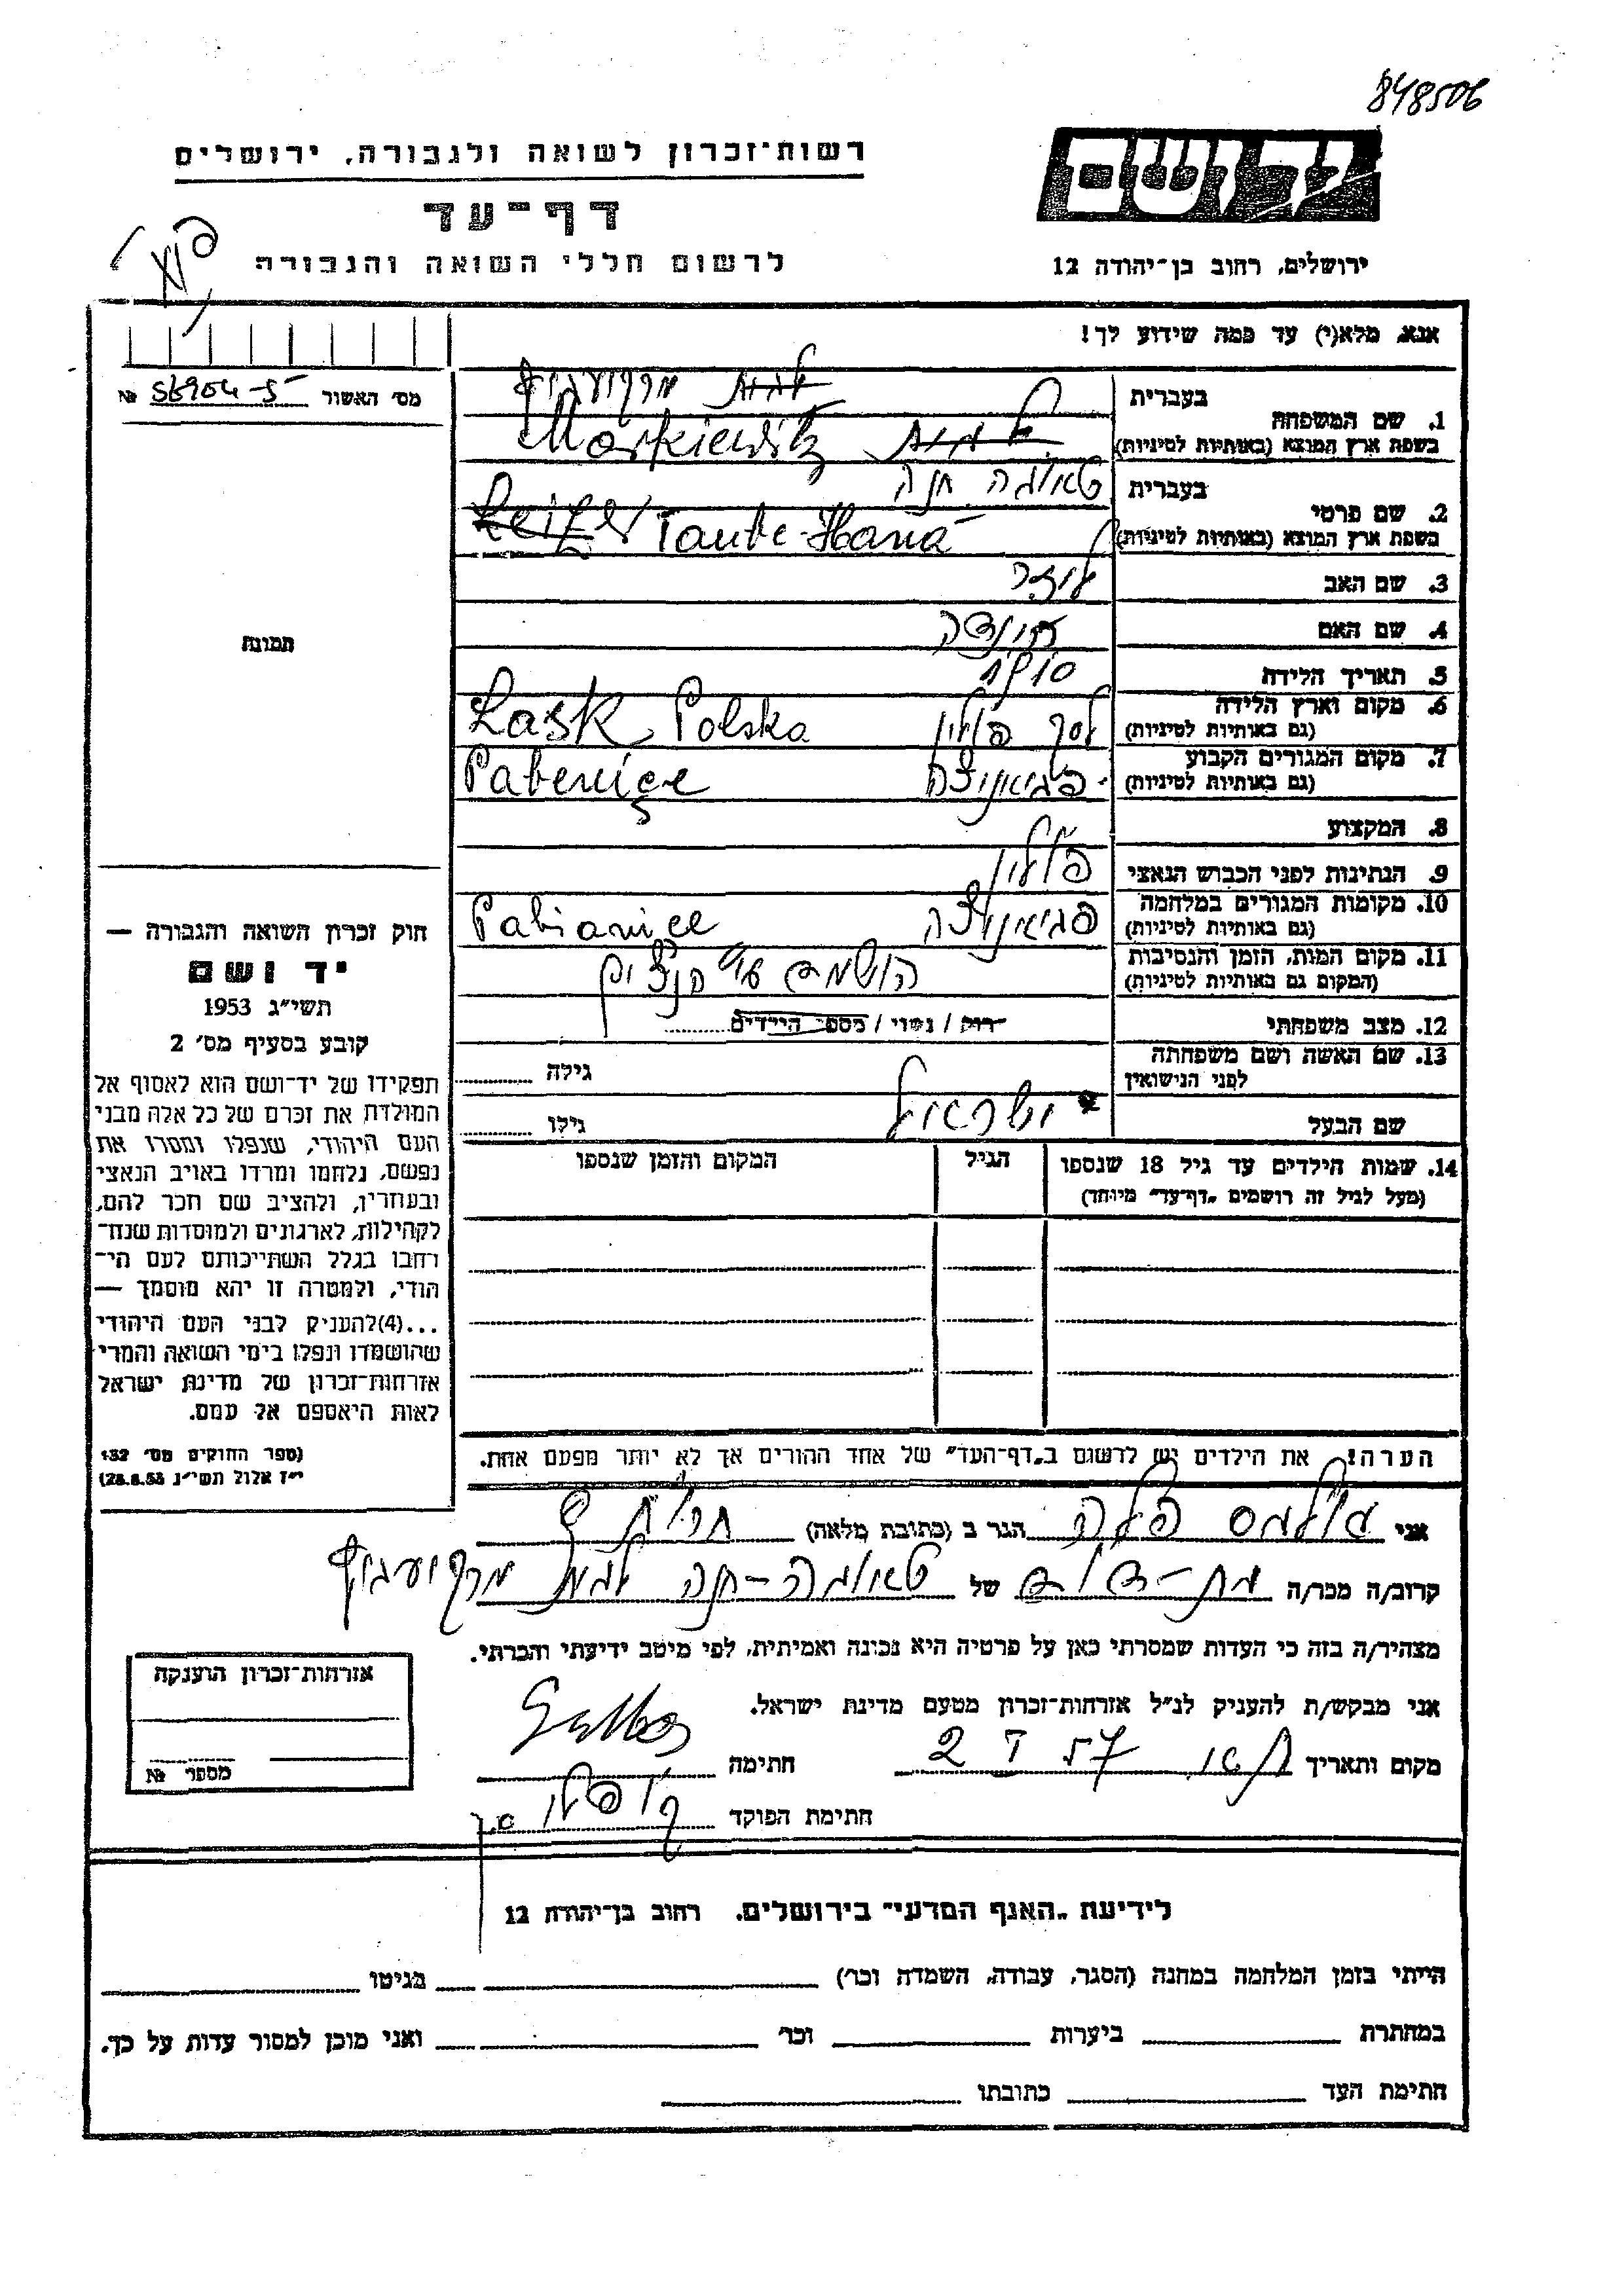 848506
רשות־זכרון לשואה ולגבורה, ירושלים
יד ושם
דף־עד
לרשום חללי השואה והגבורה
ירושלים, רחוב בן־יהודה 12
אנא, מלא(י) עד כמה שידוע לך!
מס׳ האשור № 56904-5
תמונה
1. שם המשפחה
בעברית מרקוביץ
בשפת ארץ המוצא (באותיות לטיניות) Markiewitz
2. שם פרטי
בעברית טאובה חנה
בשפת ארץ המוצא (באותיות לטיניות) Taube-Hana
3. שם האב לייזר
4. שם האם
5. תאריך הלידה
6. מקום וארץ הלידה
(גם באותיות לטיניות) לסק פולין Łask Polska
7. מקום המגורים הקבוע
(גם באותיות לטיניות) פביאניצה Pabenice
8. המקצוע
9. הנתינות לפני הכבוש הנאצי פולין
10. מקומות המגורים במלחמה
(גם באותיות לטיניות) פביאניצה Pabianice
11. מקום המות, הזמן והנסיבות
(המקום גם באותיות לטיניות)
12. מצב משפחתי רווק / נשוי / מספר הילדים
13. שם האשה ושם משפחתה
לפני הנישואין גילה
שם הבעל ישראל גילו
14. שמות הילדים עד גיל 18 שנספו הגיל המקום והזמן שנספו
(מעל לגיל זה רושמים „דף־עד״ מיוחד)
חוק זכרון השואה והגבורה —
יד ושם
תשי״ג 1953
קובע בסעיף מס׳ 2
תפקידו של יד־ושם הוא לאסוף אל
המולדת את זכרם של כל אלה מבני
העם היהודי, שנפלו ומסרו את
נפשם, נלחמו ומרדו באויב הנאצי
ובעוזריו, ולהציב שם וזכר להם,
לקהילות, לארגונים ולמוסדות שנח־
רבו בגלל השתייכותם לעם הי־
הודי, ולמטרה זו יהא מוסמך —
...(4) להעניק לבני העם היהודי
שהושמדו ונפלו בימי השואה והמרי
אזרחות־זכרון של מדינת ישראל
לאות היאספם אל עמם.
(ספר החוקים מס׳ 132
י״ז אלול תשי״ג 28.8.53)
הערה! את הילדים יש לרשום ב„דף־העד״ של אחד ההורים אך לא יותר מפעם אחת.
אני הגר ב (כתובת מלאה)
קרוב/ה מכר/ה בת-דודה של טאובה-חנה מרקוביץ
מצהיר/ה בזה כי העדות שמסרתי כאן על פרטיה היא נכונה ואמיתית, לפי מיטב ידיעתי והכרתי.
אני מבקש/ת להעניק לנ״ל אזרחות־זכרון מטעם מדינת ישראל.
מקום ותאריך 2 I 57 חתימה
חתימת הפוקד
אזרחות־זכרון הוענקה
מספר №
לידיעת „האגף המדעי״ בירושלים, רחוב בן־יהודה 12
הייתי בזמן המלחמה במחנה (הסגר, עבודה, השמדה וכר׳) בגיטו
במחתרת ביערות וכר׳ ואני מוכן למסור עדות על כך.
חתימת העד כתובתו